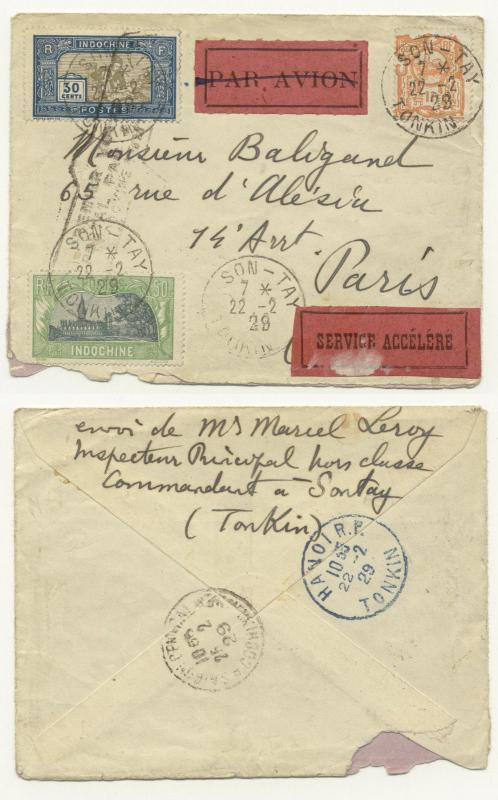 R INDOCHINE F
30
CENTS
POSTES
PAR AVION
SON-TAY
7 *
22 -2
29
TONKIN
Monsieur Baligand
65 rue d'Alésia
14e Arrt
Paris
SON-TAY
7 *
22 -2
29
TONKIN
SON-TAY
7 *
22 -2
29
TONKIN
INDOCHINE
SERVICE ACCÉLÉRÉ
envoi de Mr Marcel Leroy
Inspecteur Principal hors classe
Commandant à Sontay
(Tonkin)
HANOI R.P.
10 35
22 -2
29
TONKIN
10
25 2
29